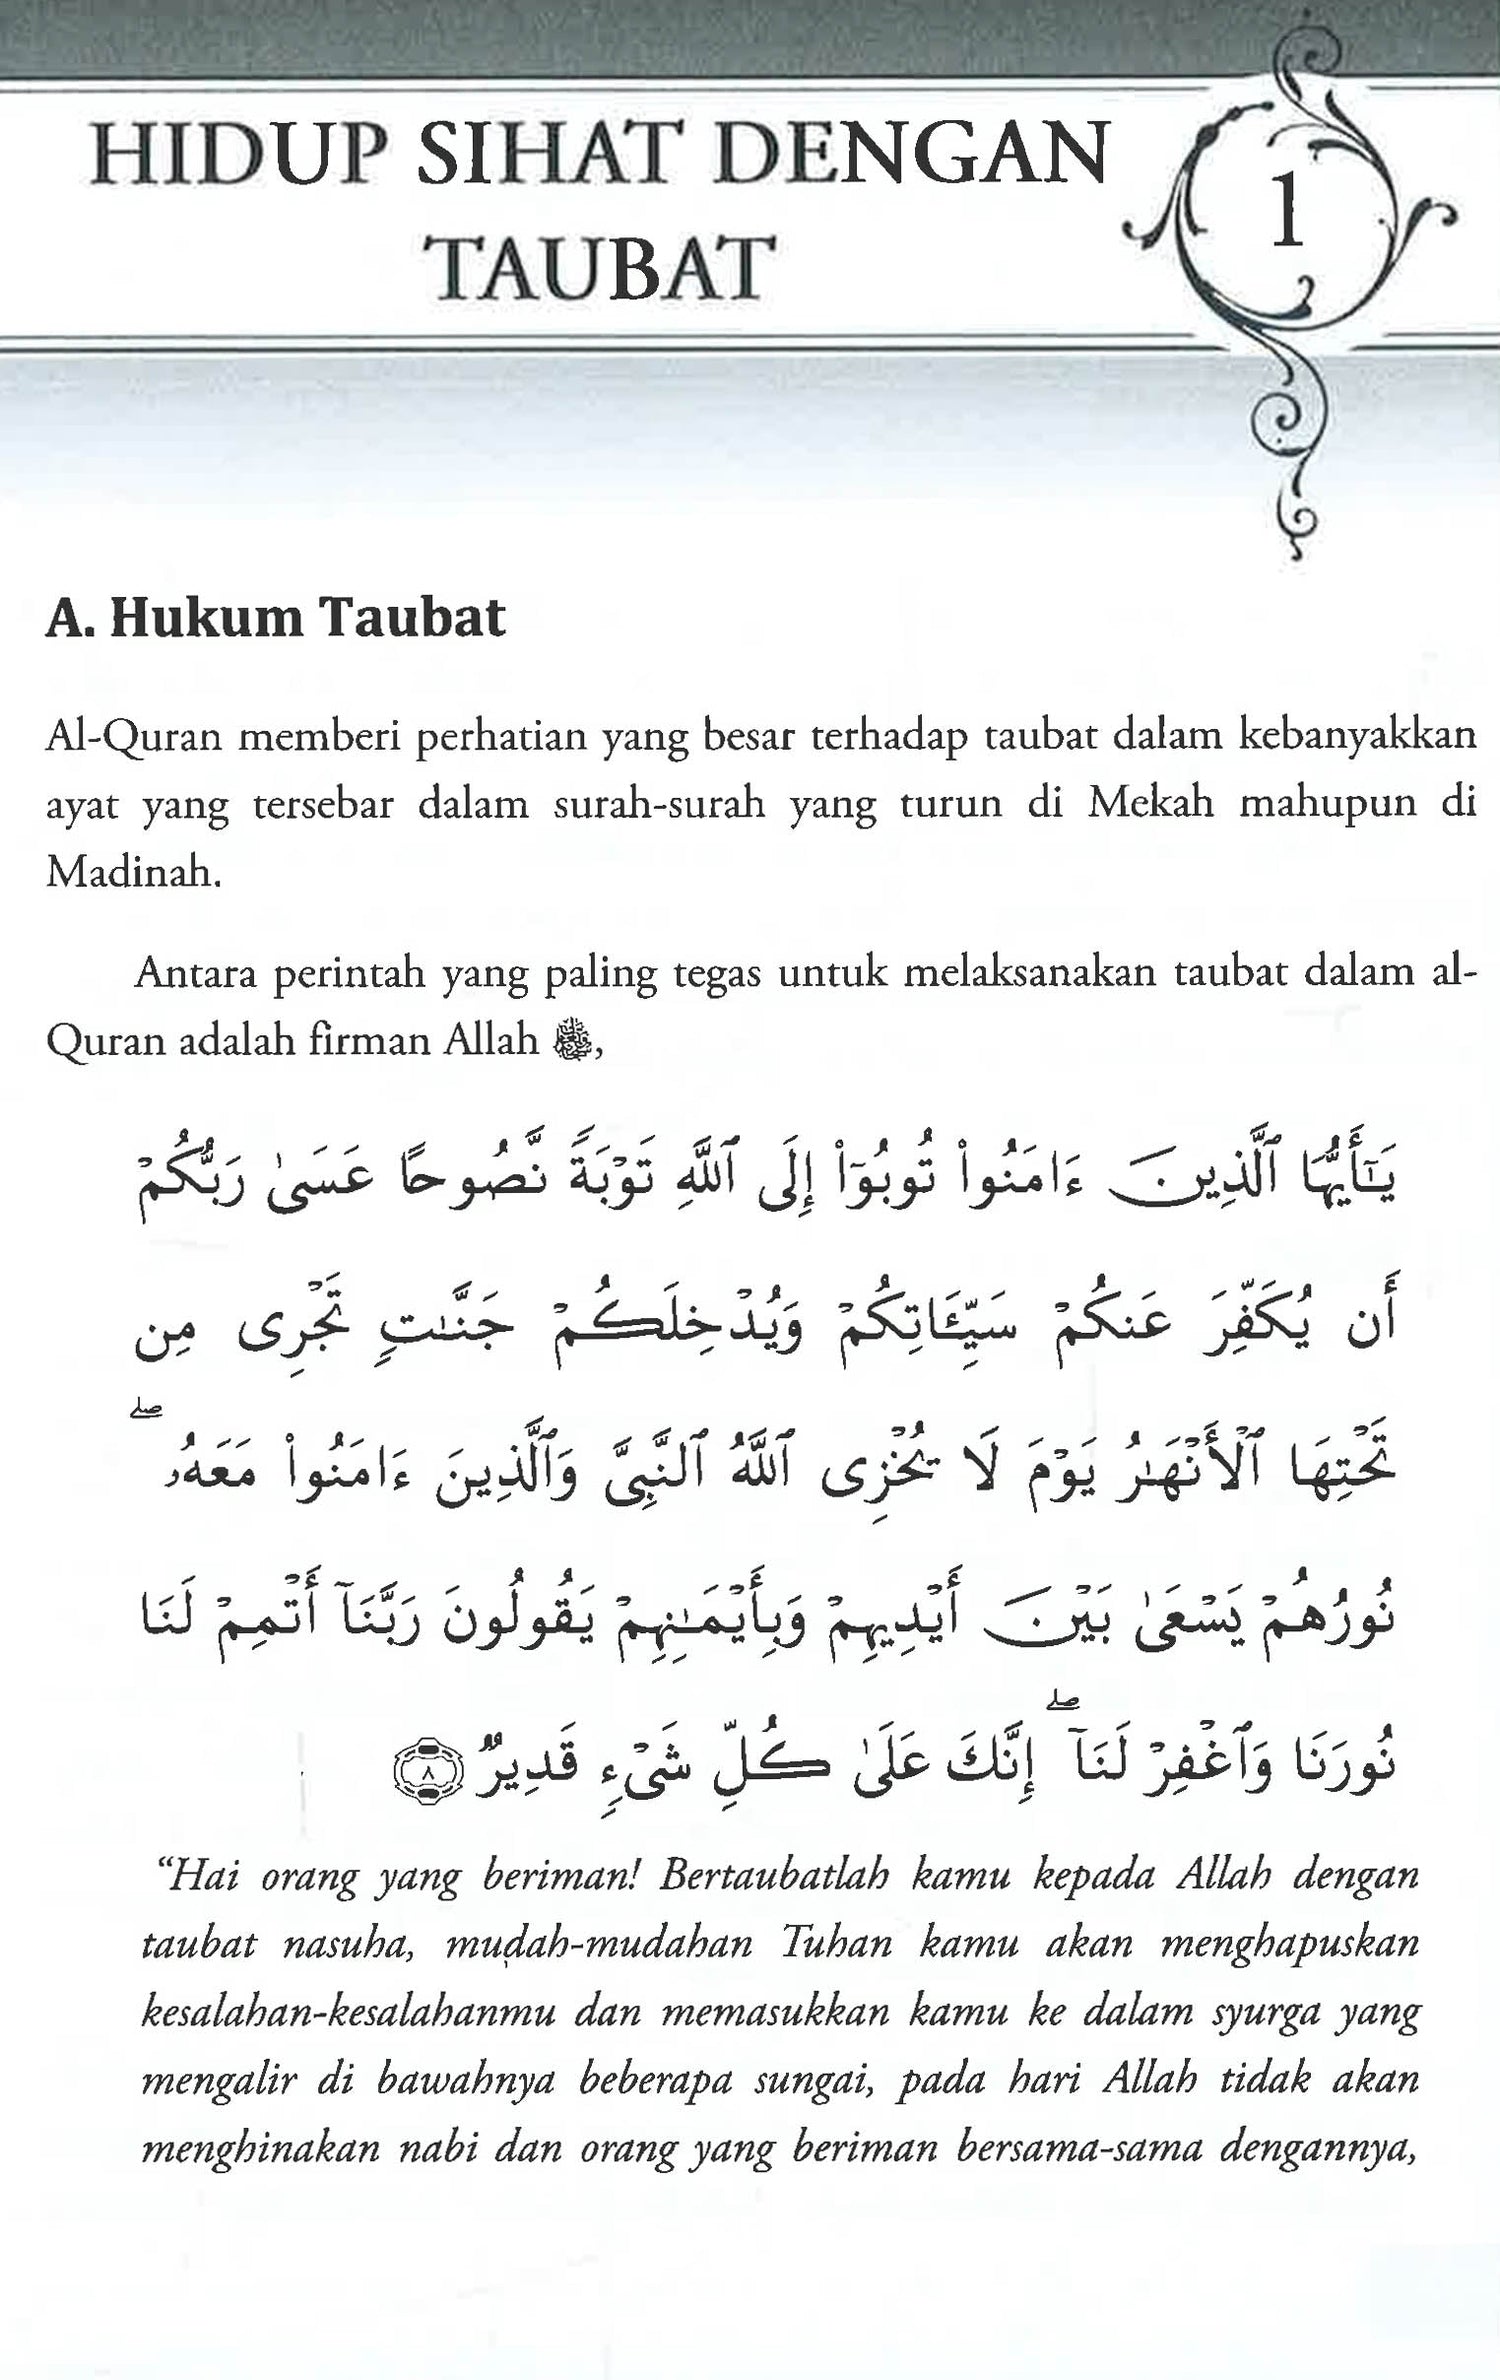 HIDUP SIHAT DENGAN
TAUBAT
1
A. Hukum Taubat
Al-Quran memberi perhatian yang besar terhadap taubat dalam kebanyakkan
ayat yang tersebar dalam surah-surah yang turun di Mekah mahupun di
Madinah.
Antara perintah yang paling tegas untuk melaksanakan taubat dalam al-
Quran adalah firman Allah ,
يَـٰٓأَيُّهَا ٱلَّذِينَ ءَامَنُوا۟ تُوبُوٓا۟ إِلَى ٱللَّهِ تَوْبَةً نَّصُوحًا عَسَىٰ رَبُّكُمْ
أَن يُكَفِّرَ عَنكُمْ سَيِّـَٔاتِكُمْ وَيُدْخِلَكُمْ جَنَّـٰتٍ تَجْرِى مِن
تَحْتِهَا ٱلْأَنْهَـٰرُ يَوْمَ لَا يُخْزِى ٱللَّهُ ٱلنَّبِىَّ وَٱلَّذِينَ ءَامَنُوا۟ مَعَهُۥ ۖ
نُورُهُمْ يَسْعَىٰ بَيْنَ أَيْدِيهِمْ وَبِأَيْمَـٰنِهِمْ يَقُولُونَ رَبَّنَآ أَتْمِمْ لَنَا
نُورَنَا وَٱغْفِرْ لَنَآ ۖ إِنَّكَ عَلَىٰ كُلِّ شَىْءٍ قَدِيرٌ ۝٨
“Hai orang yang beriman! Bertaubatlah kamu kepada Allah dengan
taubat nasuha, mudah-mudahan Tuhan kamu akan menghapuskan
kesalahan-kesalahanmu dan memasukkan kamu ke dalam syurga yang
mengalir di bawahnya beberapa sungai, pada hari Allah tidak akan
menghinakan nabi dan orang yang beriman bersama-sama dengannya,